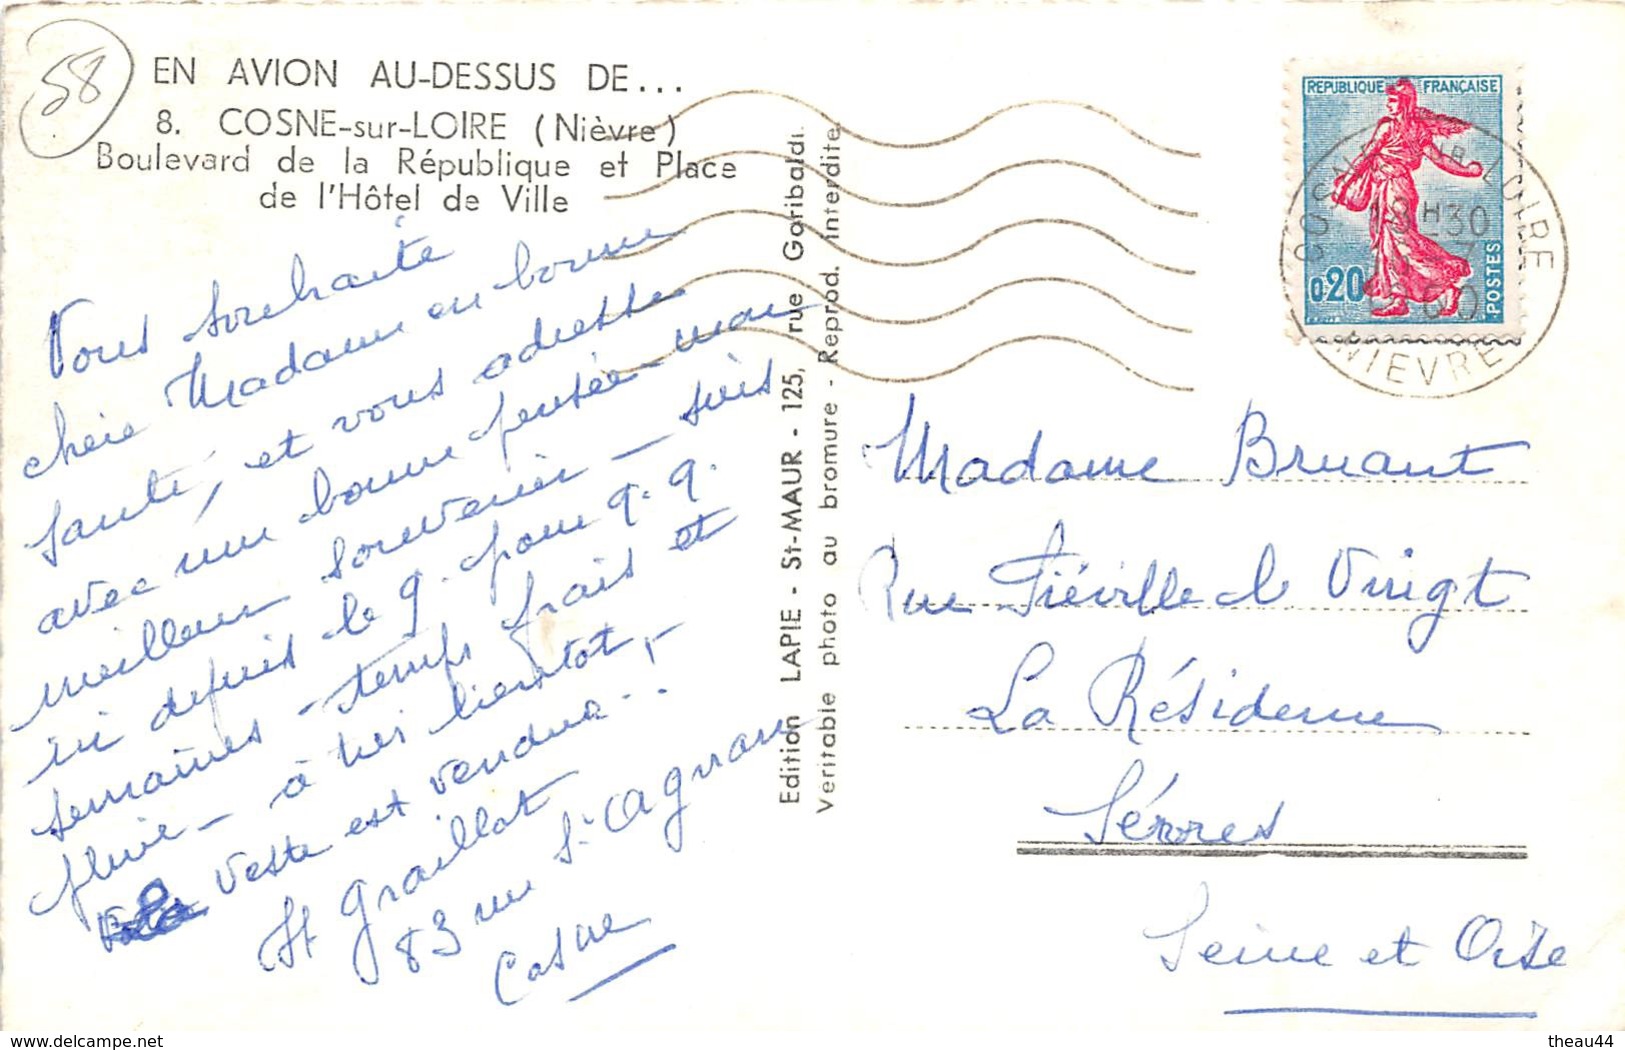 58
EN AVION AU-DESSUS DE...
8. COSNE-sur-LOIRE (Nièvre)
Boulevard de la République et Place
de l'Hôtel de Ville
Vous souhaite
chère Madame en bonne
santé, et vous adresse
avec une bonne pensée mon
meilleur souvenir - suis
ici depuis le 9. pour q.q.
semaines - temps frais et
pluie - à très bientôt, -
Veste est vendue...
Graillot
83 rue St Agnan
Cosne
Edition LAPIE - St-MAUR - 125, rue Garibaldi.
Veritable photo au bromure - Reprod. interdite.
REPUBLIQUE FRANÇAISE
0,20
POSTES
COSNE SUR LOIRE
18H30
NIEVRE
Madame Bruant
Rue
La Résidence
Sèvres
Seine et Oise
delcampe.net
theau44